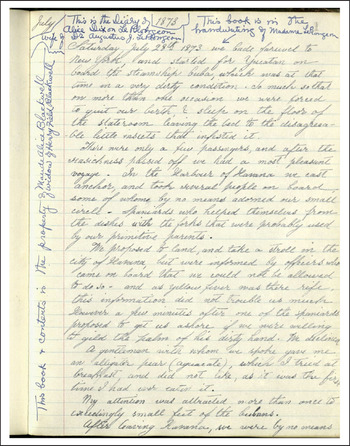 July
This is the Diary of 1873
Alice Dixon Le Plongeon
wife of Dr Augustus Le Plongeon
This book is in the
handwriting of Madame Le Plongeon
This book & contents is the property of Maude Alice Blackwell
widow of Henry Field Blackwell
Saturday July 28th 1873. we bade farewell to
New York, and started for Yucatan on
board the steamship Cuba, which was at that
time in a very dirty condition. So much so that
on more than one occasion we were forced
to quit our berth & sleep on the floor of
the stateroom leaving the bed to the disagreea-
ble little insects that infested it.
There were only a few passengers, and after the
seasickness passed off we had a most pleasant
voyage. In the Harbour of Havana we cast
anchor, and took several people on board,
some of whom by no means adorned our small
circle - Spaniards who helped themselves from
the dishes with the forks that were probably used
by our primitive parents.
We proposed to land, and take a stroll in the
city of Havana, but were informed by officers who
came on board that we would not be allowed
to do so - and as yellow fever was there rife,
this information did not trouble us much.
However a few minutes after one of the spaniards
proposed to get us ashore if we were willing
to gild the palm of his dirty hand. We declined
A gentleman with whom we spoke gave me
an alligator pear (aguacate), which I tried at
breakfast, and did not like, as it was the first
time I had ever eaten it.
My attention was attracted more than once to
exceedingly small feet of the Cubans.
After leaving Havana, we were by no means